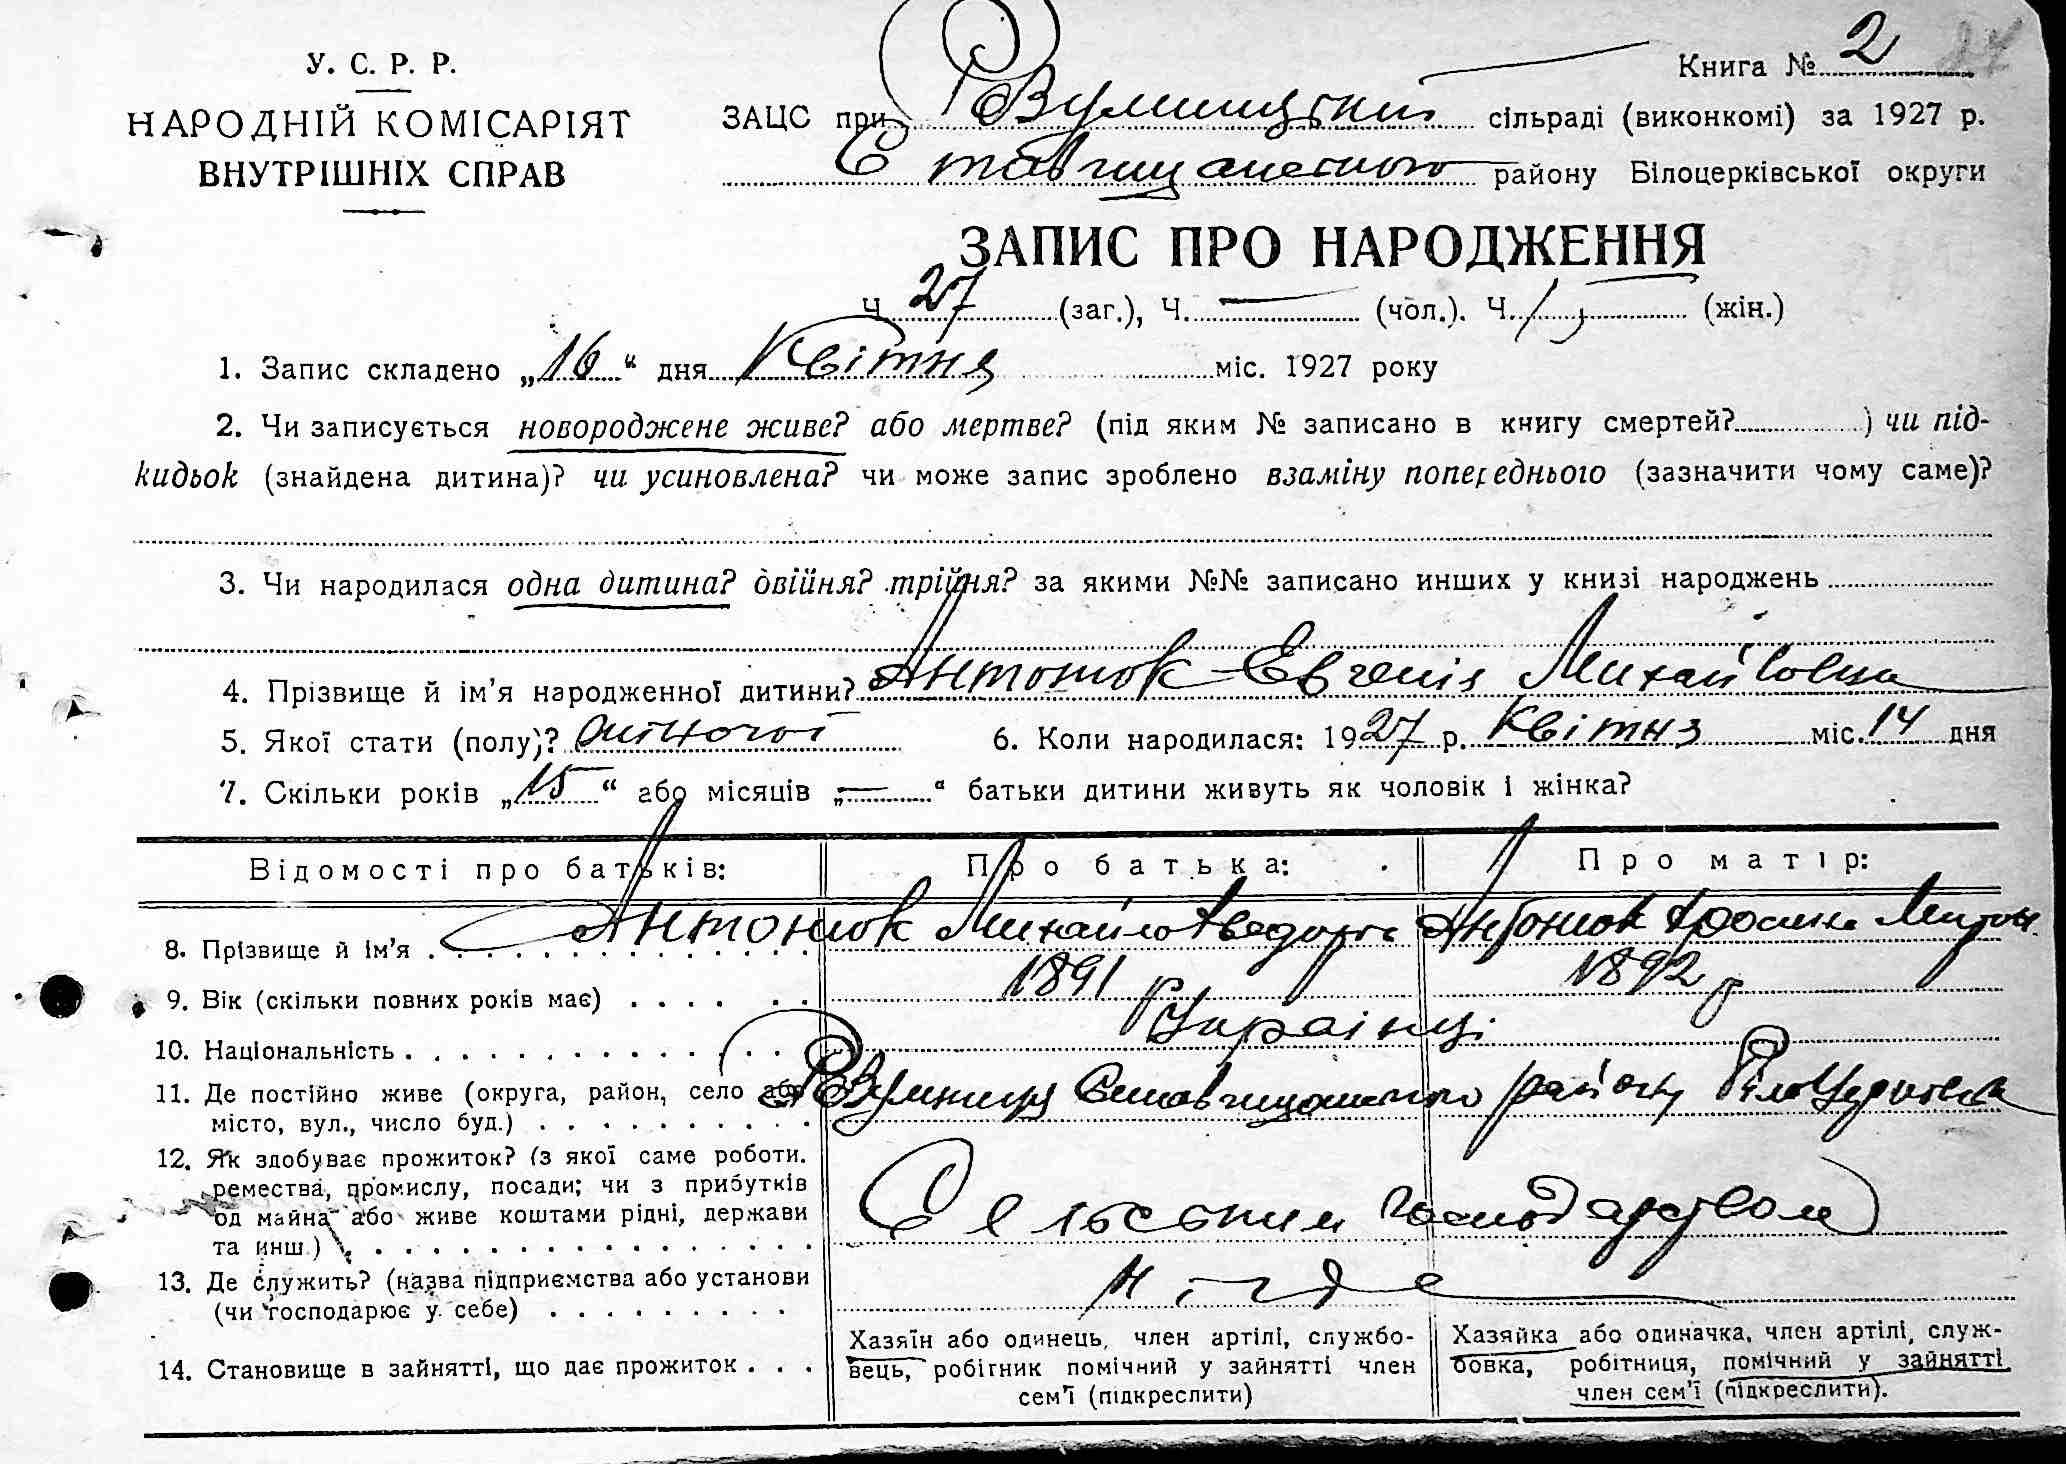 У. С. Р. Р.
НАРОДНІЙ КОМІСАРІЯТ
ВНУТРІШНІХ СПРАВ
Книга № 2
ЗАЦС при сільраді (виконкомі) за 1927 р.
району Білоцерківської округи
ЗАПИС ПРО НАРОДЖЕННЯ
Ч 27 (заг.), Ч. — (чол.). Ч. 15 (жін.)
1. Запис складено „16“ дня Квітня міс. 1927 року
2. Чи записується новороджене живе? або мертве? (під яким № записано в книгу смертей? ) чи під-
кидьок (знайдена дитина)? чи усиновлена? чи може запис зроблено взаміну попереднього (зазначити чому саме)?
3. Чи народилася одна дитина? двійня? трійня? за якими №№ записано инших у книзі народжень
4. Прізвище й ім’я народженної дитини? Антонюк Евгенія Михайловна
5. Якої стати (полу)? жіночої 6. Коли народилася: 1927 р. Квітня міс. 14 дня
7. Скільки років „15“ або місяців „—“ батьки дитини живуть як чоловік і жінка?
Відомості про батьків: Про батька: Про матір:
8. Прізвище й ім’я Антонюк Михайло Антонюк
9. Вік (скільки повних років має) 1891 р 1892 р
10. Національність Українці
11. Де постійно живе (округа, район, село або району
місто, вул., число буд.)
12. Як здобуває прожиток? (з якої саме роботи.
ремества, промислу, посади; чи з прибутків
од майна або живе коштами рідні, держави Сельским господарством
та инш.)
13. Де служить? (назва підприємства або установи
(чи господарює у себе) нігде
14. Становище в зайнятті, що дає прожиток
Хазяїн або одинець, член артілі, службо-
вець, робітник помічний у зайнятті член
сем’ї (підкреслити)
Хазяйка або одиначка, член артілі, служ-
бовка, робітниця, помічний у зайнятті
член сем’ї (підкреслити).